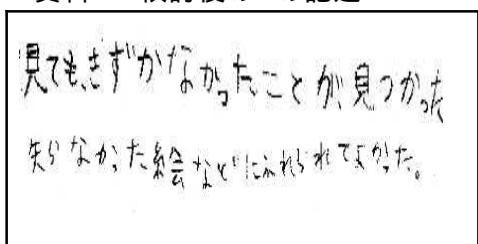 見てもきずかなかったことが見つかった
知らなかった絵などにふれられてよかった。